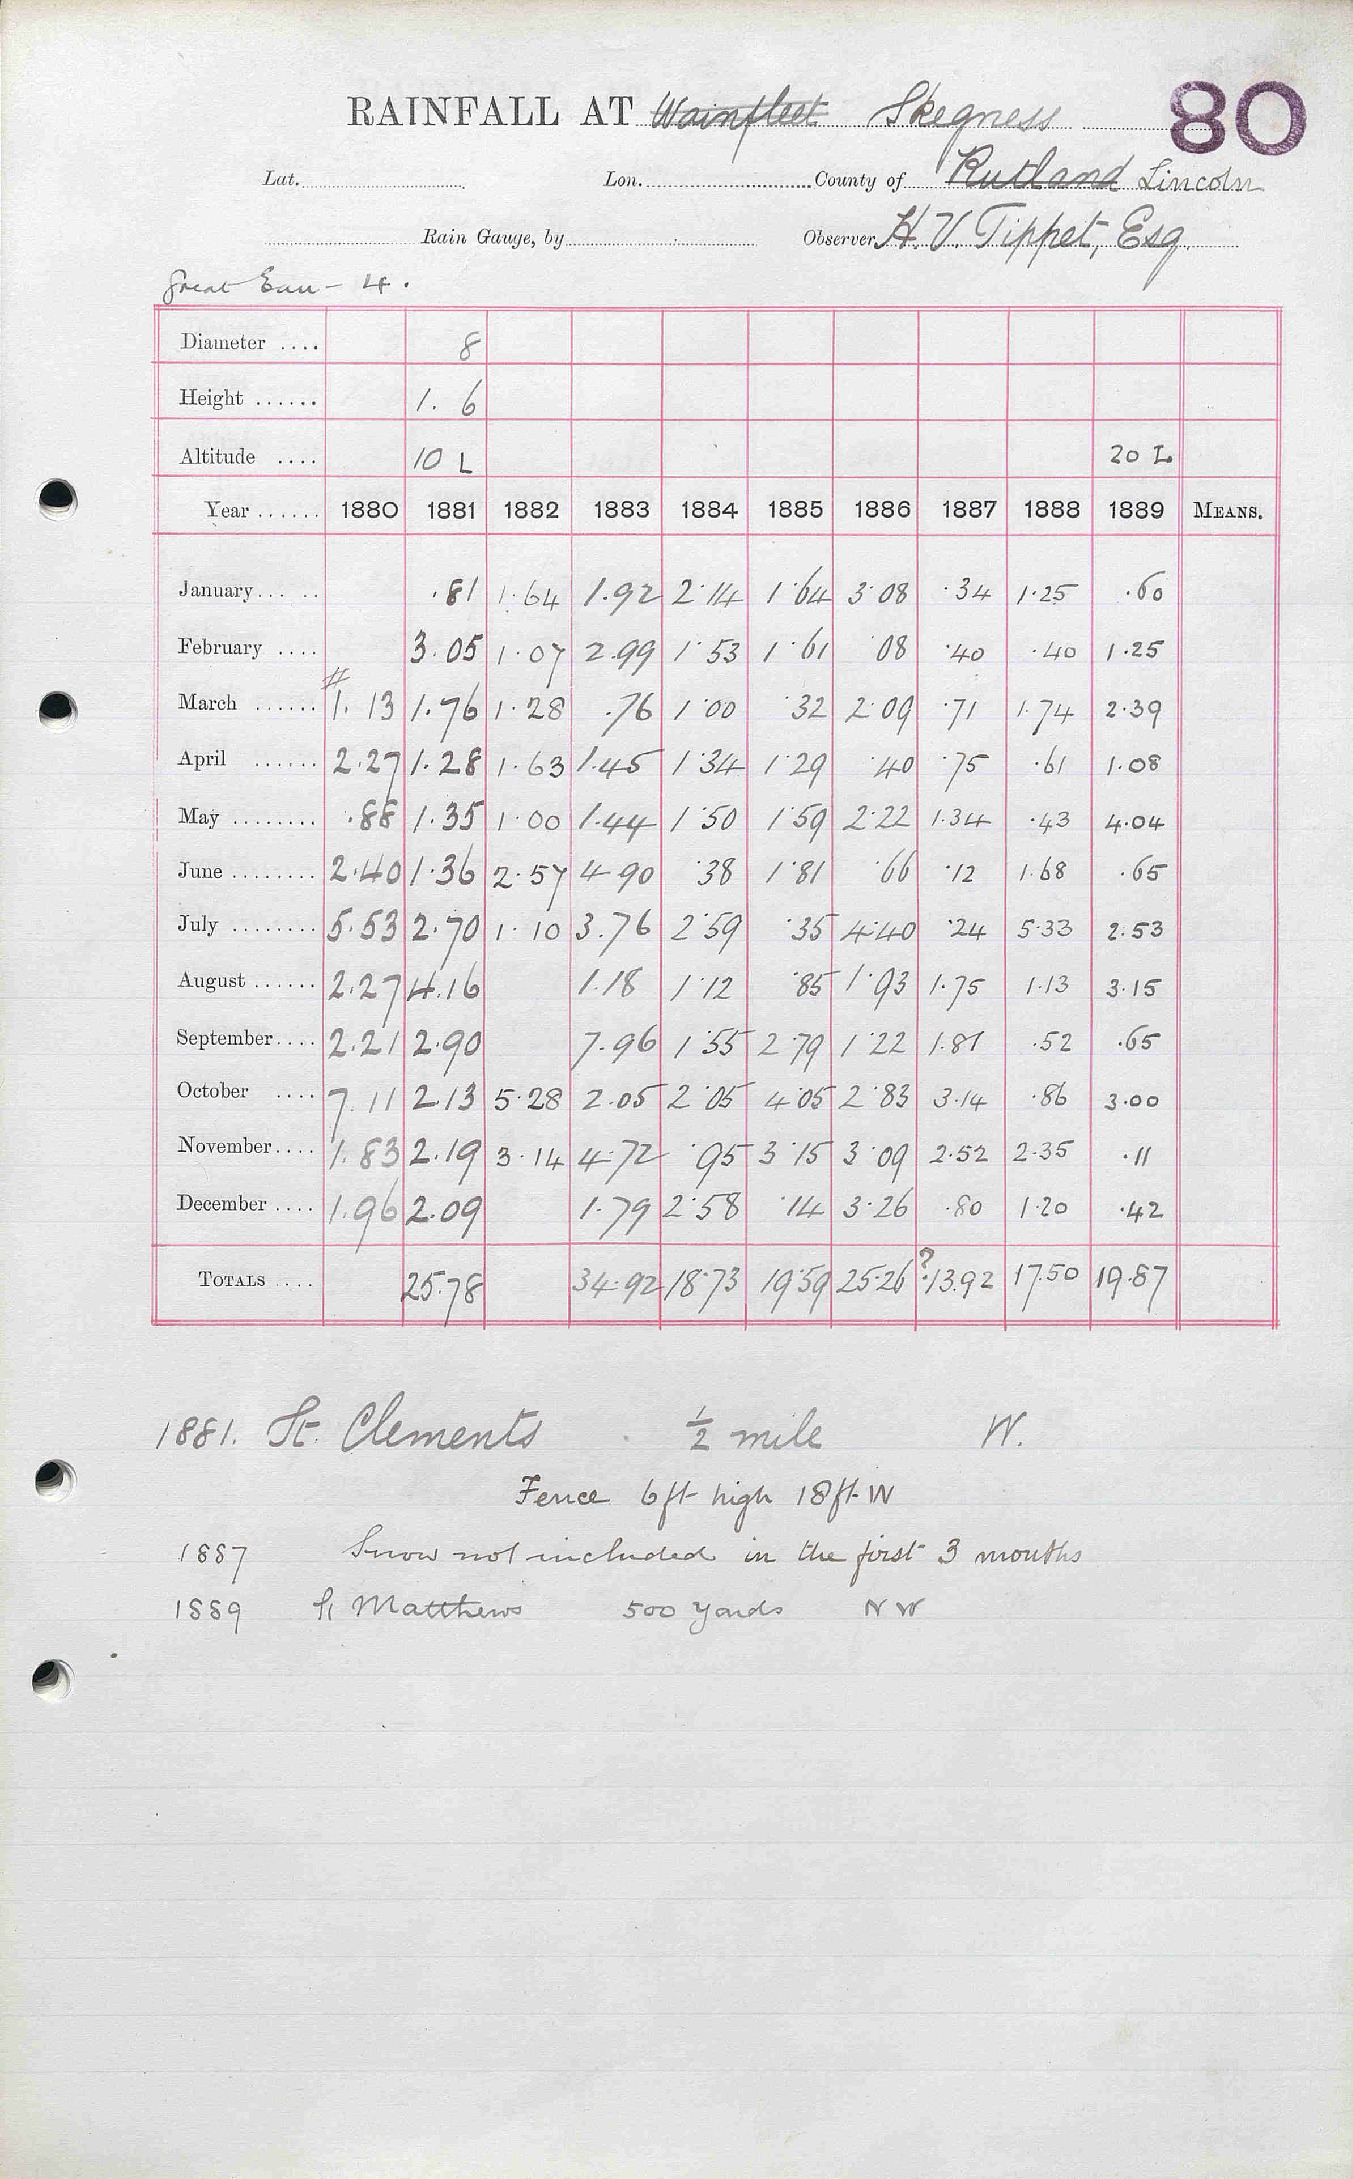 RAINFALL AT Wainfleet Skegness 80
Lat. Lon. County of Rutland Lincoln
Rain Gauge, by Observer H. V. Tippet, Esq.
Great Eau - 4.
Diameter .... 8
Height ...... 1. 6
Altitude .... 10 L 20 L
Year ...... 1880 1881 1882 1883 1884 1885 1886 1887 1888 1889 MEANS.
January... .. .81 1.64 1.92 2.14 1.64 3.08 .34 1.25 .60
February .... 3.05 1.07 2.99 1.53 1.61 .08 .40 .40 1.25
March ...... # 1.13 1.76 1.28 .76 1.00 .32 2.09 .71 1.74 2.39
April ...... 2.27 1.28 1.63 1.45 1.34 1.29 .40 .75 .61 1.08
May ........ .88 1.35 1.00 1.44 1.50 1.59 2.22 1.34 .43 4.04
June ........ 2.40 1.36 2.57 4.90 .38 1.81 .66 .12 1.68 .65
July ........ 5.53 2.70 1.10 3.76 2.59 .35 4.40 .24 5.33 2.53
August ...... 2.27 4.16 1.18 1.12 .85 1.93 1.75 1.13 3.15
September.... 2.21 2.90 7.96 1.55 2.79 1.22 1.81 .52 .65
October .... 7.11 2.13 5.28 2.05 2.05 4.05 2.83 3.14 .86 3.00
November.... 1.83 2.19 3.14 4.72 .95 3.15 3.09 2.52 2.35 .11
December .... 1.96 2.09 1.79 2.58 .14 3.26 .80 1.20 .42
TOTALS .... 25.78 34.92 18.73 19.59 25.26 ? 13.92 17.50 19.87
1881. St. Clements ½ mile W.
Fence 6 ft high 18 ft W
1887 Snow not included in the first 3 months
1889 St Matthews 500 yards NW